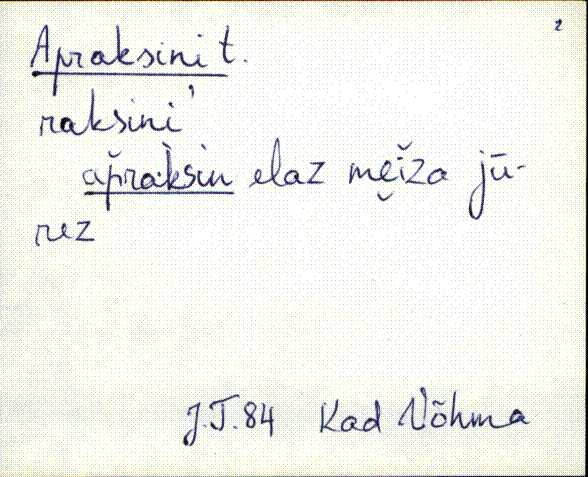 2
Apraksini t.
raksini'
ăpràkšin elaz mẹi̮ža jū-
rez
J.T.84 Kad Võhma